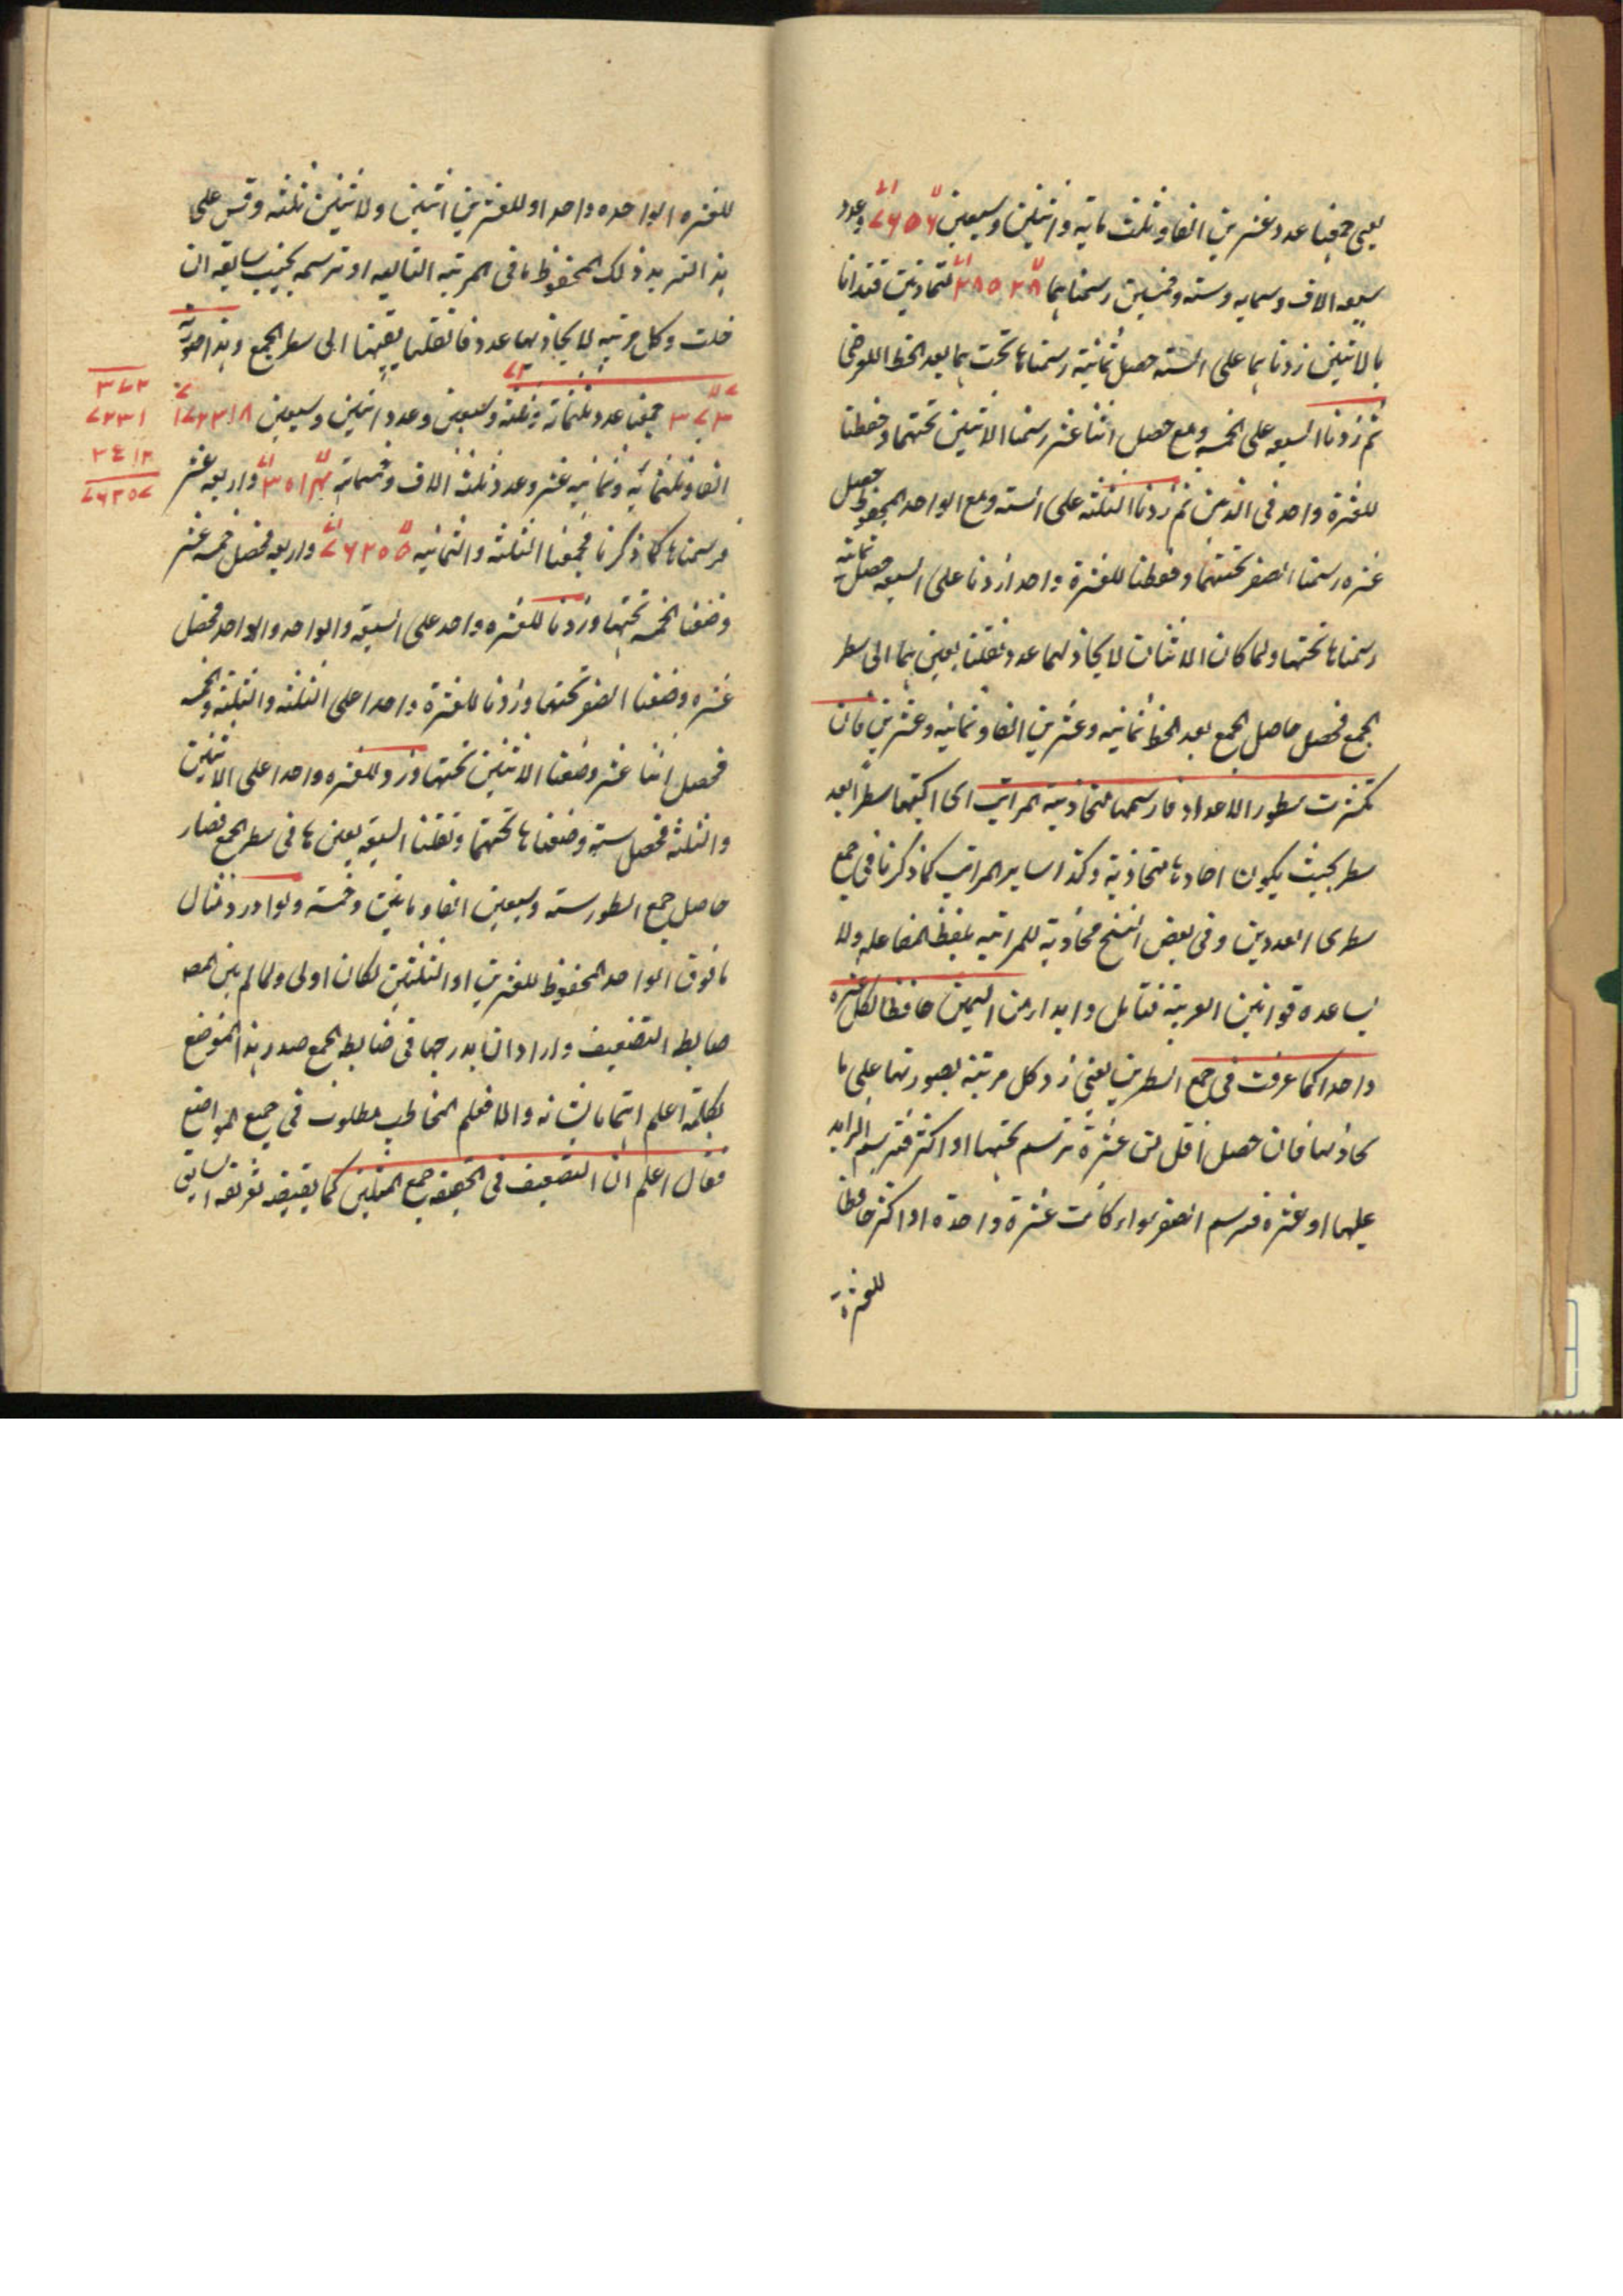 يعنى جمعنا عدد عشرين الفا و ثلث مايه واثنين وسبعين ٧٦٥٦ وعدد
سبعه الاف وسمايه وسته وخمسين رسمناهما متحاذيتين فبدانا
بالاثنين زدناهما على السته حصل ثمانية رسمناها تحت هما بعد الخط العرضى
ثم زدنا السبعه على الخمسه ومع حصل اثنا عشر رسمنا الاثنين تحتهما وحفظنا
للعشرة واحد فى الذهن ثم زدنا الثلثه على السته ومع الواحد المحفوظ حصل
عشره رسمنا الصفر تحتهما وحفظنا للعشرة واحد ازدنا على السبعه حصل ثمانيه
رسمناها تحتها ولما كان الاثنان لا يحاذيهما عدد نقلنا بعينهما الى سطر
الجمع فحصل حاصل الجمع بعد الخط ثمانيه وعشرين الفا و ثمانيه وعشرين فان
تكثرت سطور الاعداد فارسمها متحاذية المراتب اى اكتبها سطرا بعد
سطر بحيث يكون احادها متحاذية وكذا ساير المراتب كما ذكرنا فى جمع
سطرى العددين وفى بعض النسخ محاذية للمراتبه بلفظ المفاعله ولا
يساعده قوانين العربية فتامل وابدا من اليمين حافظا لكل عشره
واحدا كما عرفت فى جمع السطرين يعنى زد كل مرتبة بصورتها على ما
يحاذيها فان حصل اقل من عشرة ترسم تحتها او اكثر فترسم الزايد
عليها او عشرة فترسم الصفر سواء كانت عشرة واحدة او اكثر حافظا
للعشرة
للعشره الواحده واحدا وللعشرين اثنين ولاثنين ثلثه وقس على
هذا لتزيد ذلك المحفوظ ما فى المرتبه التاليه او ترسمه بجنب سابقه ان
خلت وكل مرتبه لا يحاذيها عدد فانقلها بعينها الى سطر الجمع وهذا صورته
٣٧٣ جمعنا عدد ثلثمائه وثلثه وسبعين وعدد اثنين وسبعين ٧٢٣١٨
الفا وثلثمائه وثمانيه عشر وعدد ثلثه الاف وخمسمائة واربعه عشر
فرسمناها كما ذكرنا فجمعنا الثلثه والثمانيه ٧٦٢٠٥ واربعه فحصل خمسه عشر
وضعنا الخمسه تحتها وزدنا للعشره واحد على السبعه والواحد والواحد فحصل
عشره وضعنا الصفر تحتها وزدنا للعشرة واحدا على الثلثه والثلثه والخمسه
فحصل اثنا عشر وضعنا الاثنين تحتها وزد للعشره واحدا على الاثنين
والثلثه فحصل سته وضعناها تحتهما ونقلنا السبعه بعينها فى سطر الجمع فصار
حاصل جمع السطور سته وسبعين الفا ومايتين وخمسة ولو اورد مثال
ما فوق الواحد المحفوظ للعشرين او الثلثين لكان اولى ولما لم يبين المص
ضابط التضعيف واراد ان يدرجها فى ضابطه الجمع صدر هذا الموضع
بكلمة اعلم اهتماما بشانه والا فعلم المخاطب مطلوب فى جميع المواضع
فقال اعلم ان التضعيف فى الحقيقه جمع المثلين كما يقتضيه تعريفه السابق